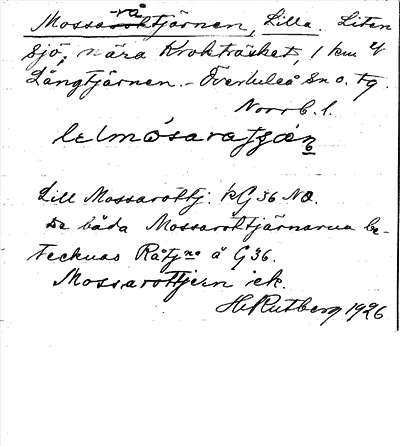 Mossaråtjärnen, Lilla. Liten
sjö, nära Krokträsket, 1 km
Långtjärnen. - Överluleå sn o. tg.
Norrb. l.
lelmósaratjǫ́n
Lill Mossarottj. kG 36 NO.
De båda Mossaråtjärnarna be-
tecknas Råtjna å G 36.
Mossarottjern ek.
H Rutberg 1926